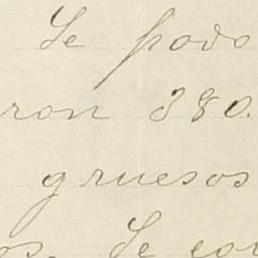 Se podo
ron 380.
gruesos
os. Se cor